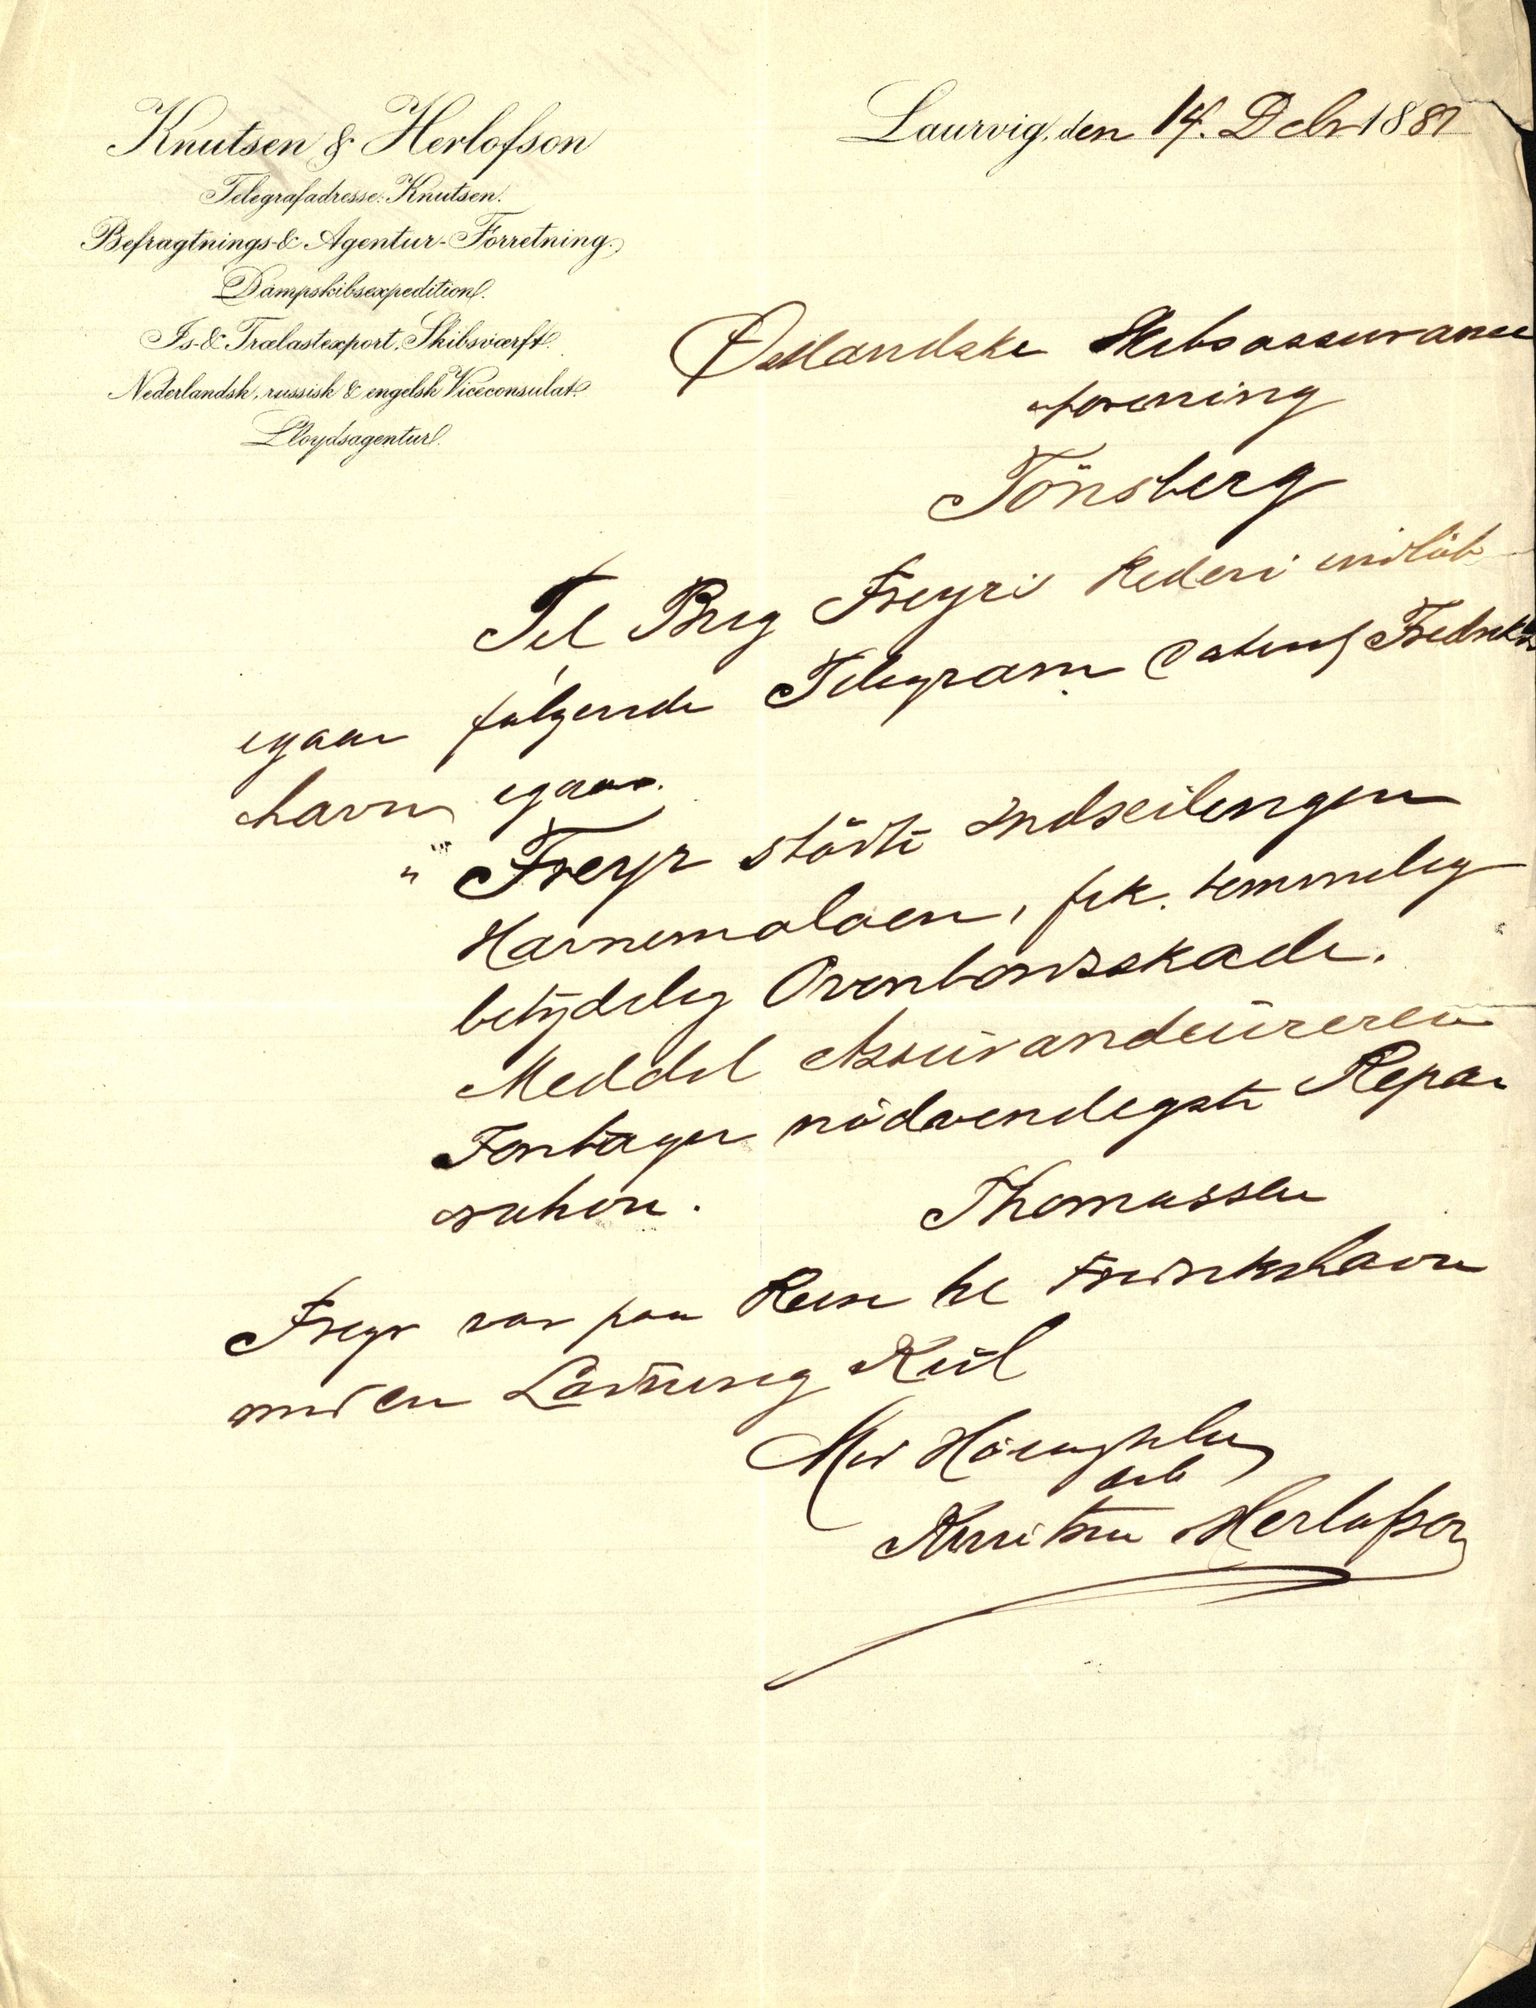 Knutsen & Herlofson
Telegrafadresse: Knutsen.
Befragtnings- & Agentur-Forretning.
Dampskibsexpedition.
Is- & Trælastexport, Skibsværft.
Nederlandsk, russisk & engelsk Viceconsulat.
Lloydsagentur.
Laurvig, den 14. Decbr 1887
Østlandske Skibsassurance
forening
Tönsberg
Til Brig Freyrs Rederi indlöb
igaar følgende Telegram dateret Fredriks
havn igaar.
"Freyr stödte Indseilingen
Havnemoloen, fik temmelig
betydelig Ovenbordsskade.
Meddel Assurandeureren
Foretager nödvendigste Repa-
ration.
Thomassen
Freyr var paa Reise til Fredrikshavn
med en Ladning Kul
Med Höiagtelse
Knutsen Herlofson